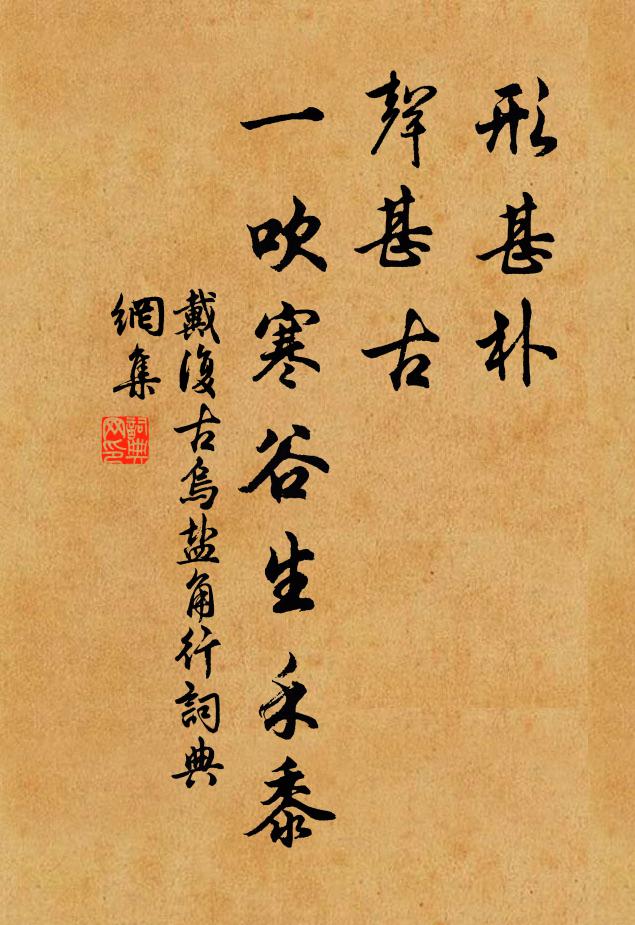 形甚朴
聲甚古
一吹寒谷生禾黍
戴復古烏盐角行詞典
網集
詞典
网印